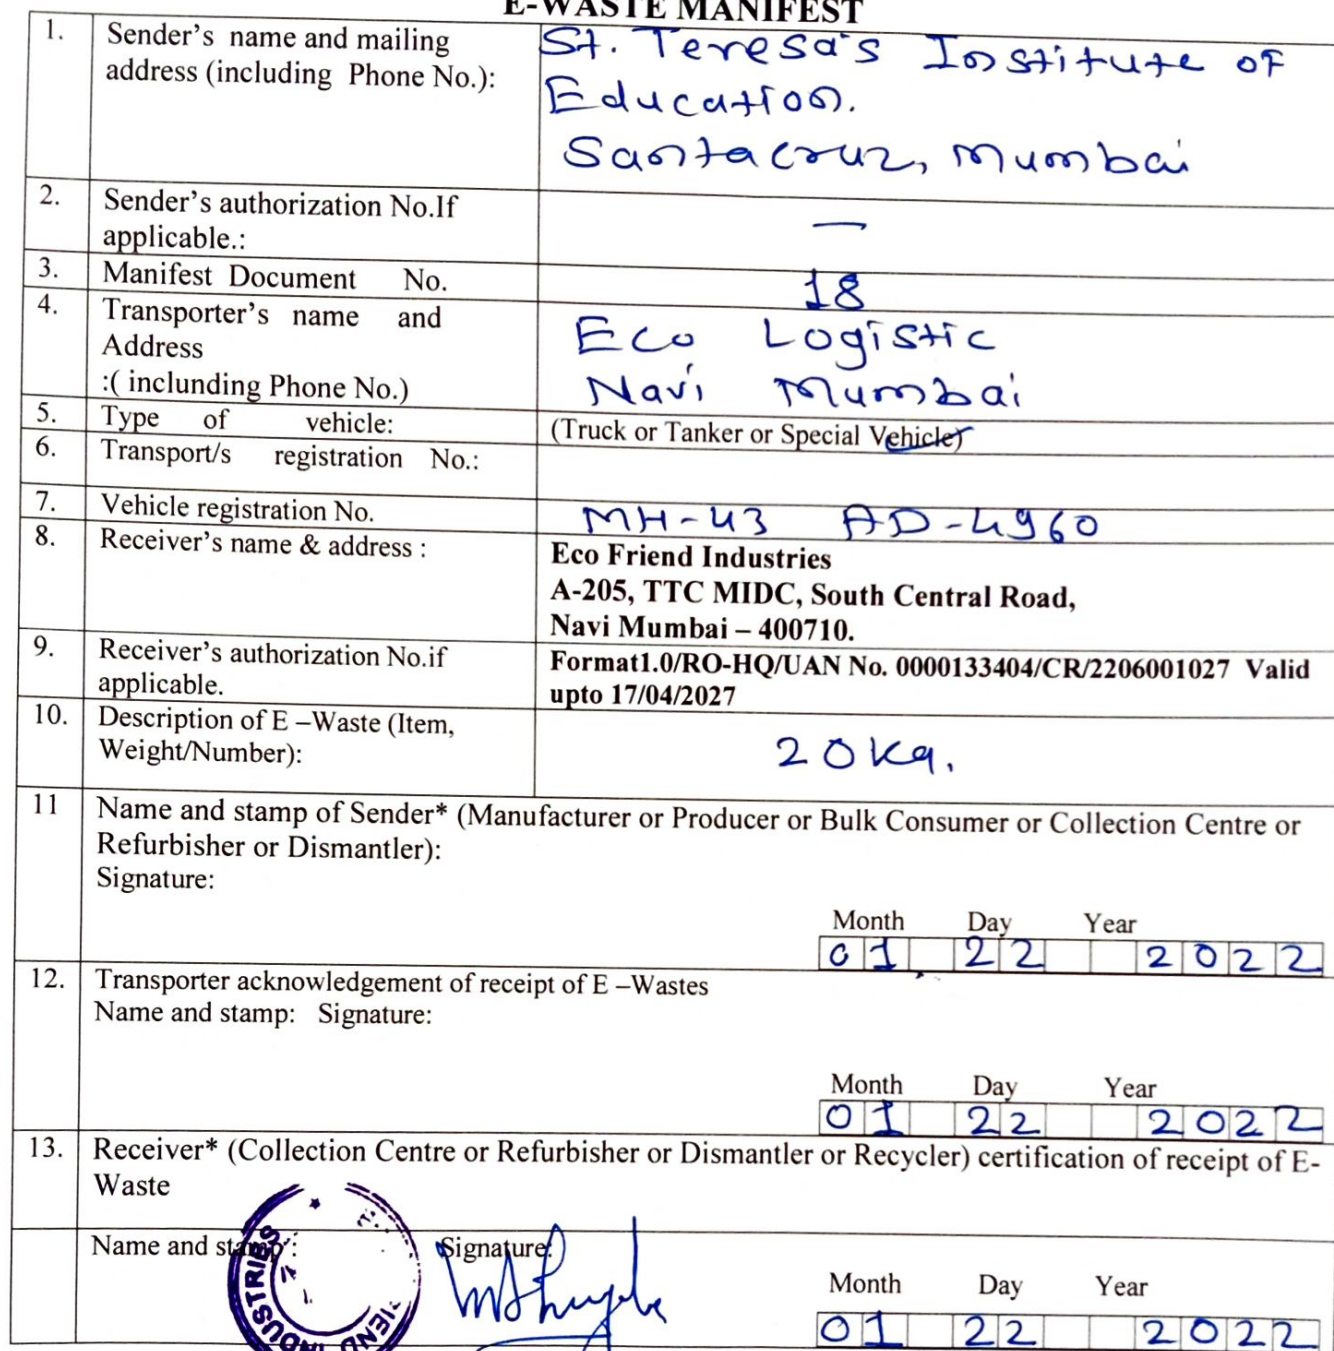 E-WASTE MANIFEST
1. Sender's name and mailing
address (including Phone No.):
St. Teresa's Institute of
Education.
Santacruz, Mumbai
2. Sender's authorization No.If
applicable.:
—
3. Manifest Document No.
18
4. Transporter's name and
Address
:( inclunding Phone No.)
Eco Logistic
Navi Mumbai
5. Type of vehicle:
(Truck or Tanker or Special Vehicle)
6. Transport/s registration No.:
7. Vehicle registration No.
MH-43 AD-4960
8. Receiver's name & address :
Eco Friend Industries
A-205, TTC MIDC, South Central Road,
Navi Mumbai – 400710.
9. Receiver's authorization No.if
applicable.
Format1.0/RO-HQ/UAN No. 0000133404/CR/2206001027 Valid
upto 17/04/2027
10. Description of E –Waste (Item,
Weight/Number):
20 Kg.
11 Name and stamp of Sender* (Manufacturer or Producer or Bulk Consumer or Collection Centre or
Refurbisher or Dismantler):
Signature:
Month Day Year
01 22 2022
12. Transporter acknowledgement of receipt of E –Wastes
Name and stamp: Signature:
Month Day Year
01 22 2022
13. Receiver* (Collection Centre or Refurbisher or Dismantler or Recycler) certification of receipt of E-
Waste
Name and stamp : Signature:
INDUSTRIES
Month Day Year
01 22 2022